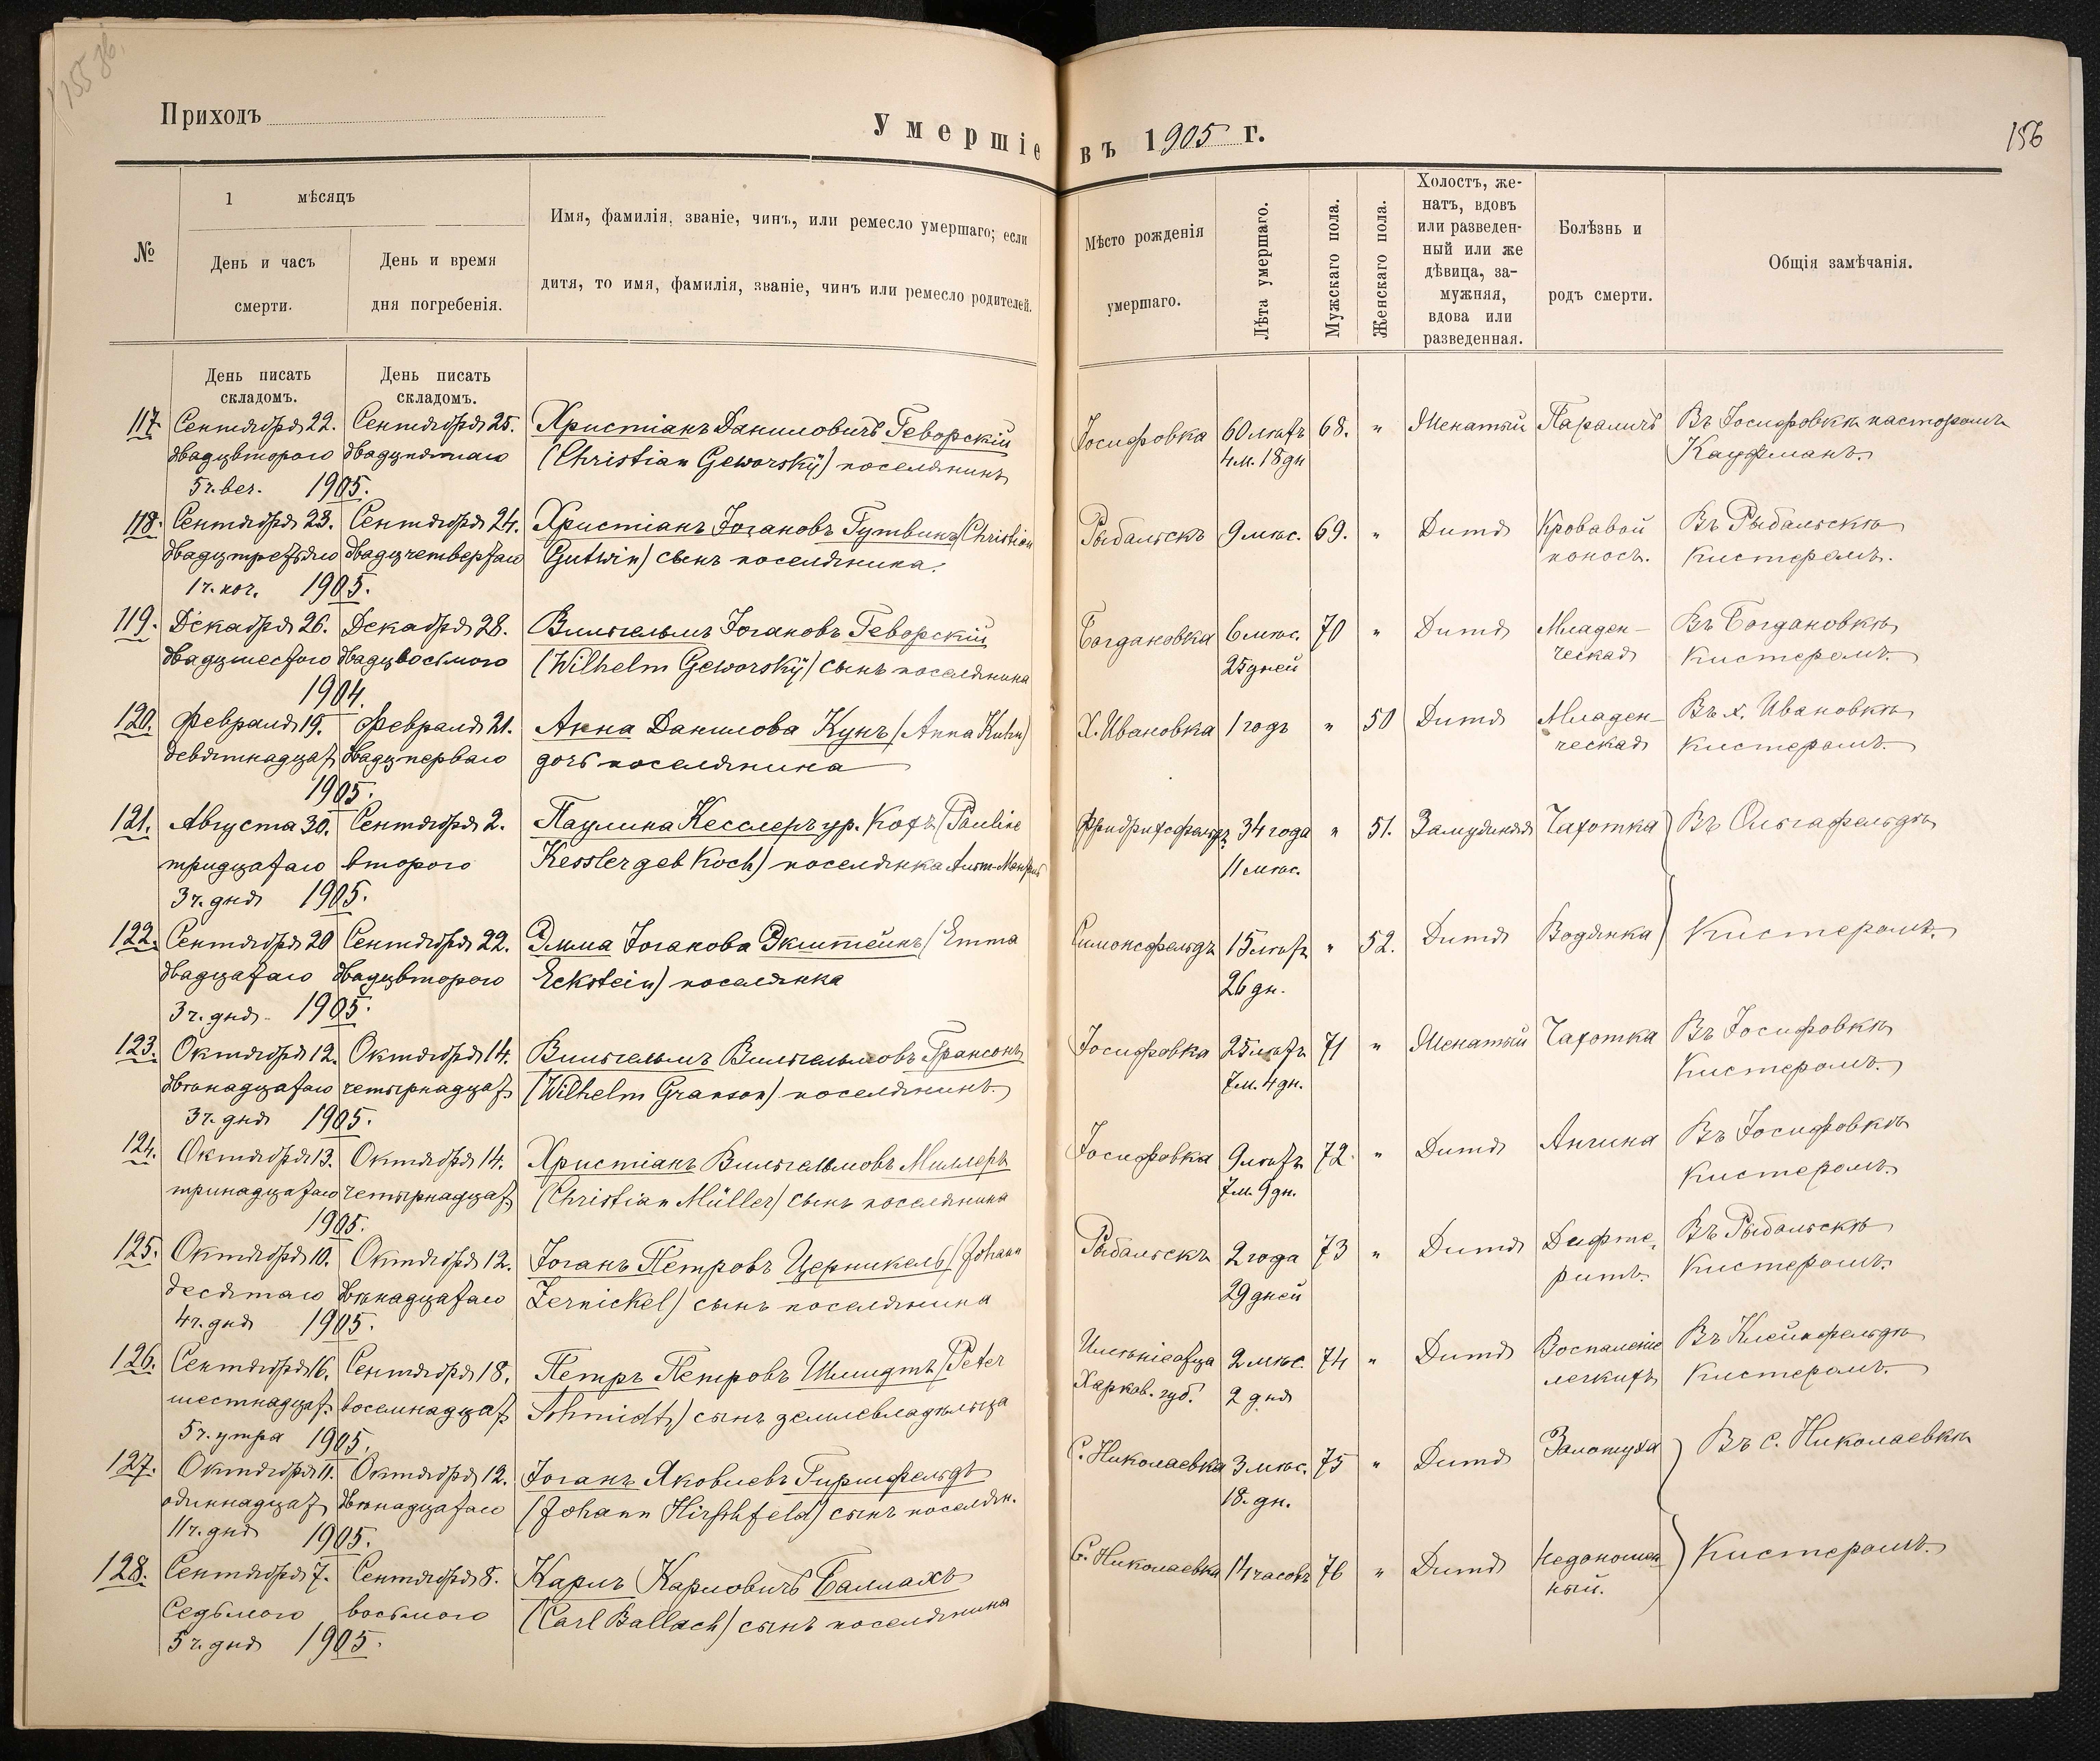 155 об.
Приходъ
Умершіе въ 1905 г.
156
№
1 мѣсяцъ
День и часъ
смерти.
День и время
дня погребенія.
Имя, фамилія, званіе, чинъ, или ремесло умершаго; если
дитя, то имя, фамилія, званіе, чинъ или ремесло родителей.
Мѣсто рожденія
умершаго.
Лѣта умершаго.
Мужскаго пола.
Женскаго пола.
Холостъ, же-
натъ, вдовъ
или разведен-
ный или же
дѣвица, за-
мужняя,
вдова или
разведенная.
Болѣзнь и
родъ смерти.
Общія замѣчанія.
День писать
складомъ.
День писать
складомъ.
117. Сентября 22. Сентября 25. Христіанъ Даниловичъ Геворскій Іосифовка 60 лѣтъ 68. " Женатый Параличъ Въ Іосифовкѣ пасторомъ
двадцвторого двадцпятаго (Christian Geworsky) поселянинъ 4 м. 18 дн Кауфманъ.
5 ч. веч. 1905.
118. Сентября 23. Сентября 24. Христіанъ Іогановъ Гутвинъ (Christian Рыбальскъ 9 мѣс. 69. " Дитя Кровавой Въ Рыбальскѣ
двадцтретьяго двадцчетвертаго Gutwin) сынъ поселянина. поносъ. Кистеромъ.
1 ч. ноч. 1905.
119. Декабря 26. Декабря 28. Вильгельмъ Іогановъ Геворскій Богдановка 6 мѣс. 70 " Дитя Младен- Въ Богдановкѣ
двадцшестого двадцвосьмого (Wilhelm Geworsky) сынъ поселянина 25 дней ческая Кистеромъ.
1904.
120. Февраля 19. Февраля 21. Анна Данилова Кунъ (Anna Kuhn) Х. Ивановка 1 годъ " 50 Дитя Младен- Въ х. Ивановкѣ
девятнадцат двадцперваго дочь поселянина ческая Кистеромъ.
1905.
121. Августа 30. Сентября 2. Паулина Кесслеръ ур. Кохъ (Pauline Фридрихсфельдъ 34 года " 51. Замужняя Чахотка Въ Ольгафельдѣ
тридцатаго второго Kessler geb Koch) поселянка 11 мѣс.
3 ч. дня 1905.
122. Сентября 20 Сентября 22. Эмма Іоганова Экштейнъ (Emma Симонсфельдъ 15 лѣтъ " 52. Дитя Водянка Кистеромъ.
двадцатаго двадцвторого Eckstein) поселянка 26 дн.
3 ч. дня 1905.
123. Октября 12. Октября 14. Вильгельмъ Вильгельмовъ Грансонъ Іосифовка 25 лѣтъ 71 " Женатый Чахотка Въ Іосифовкѣ
двѣнадцатаго четырнадцат (Wilhelm Granson) поселянинъ. 7 м. 4 дн. Кистеромъ.
3 ч. дня 1905.
124. Октября 13. Октября 14. Христіанъ Вильгельмовъ Миллеръ Іосифовка 9 лѣтъ 72. " Дитя Ангина Въ Іосифовкѣ
тринадцатаго четырнадцат (Christian Müller) сынъ поселянина 7 м. 9 дн. Кистеромъ.
1905.
125. Октября 10. Октября 12. Іоганъ Петровъ Церникель (Johann Рыбальскъ 2 года 73 " Дитя Дифте- Въ Рыбальскѣ
десятаго двѣнадцатаго Zernickel) сынъ поселянина 29 дней ритъ. Кистеромъ.
4 ч. дня 1905.
126. Сентября 16. Сентября 18. Петръ Петровъ Шмидтъ (Peter 2 мѣс. 74 " Дитя Воспаленіе Въ Клейнфельдѣ
шестнадцат восемнадцат Schmidt) сынъ землевладѣльца Харков. губ. 2 дня легкихъ Кистеромъ.
5 ч. утра 1905.
127. Октября 11. Октября 12. Іоганъ Яковлевъ Гиршфельдъ С. Николаевка 3 мѣс. 75 " Дитя Золотуха Въ с. Николаевкѣ
одиннадцат двѣнадцатаго (Johann Hirschfeld) сынъ поселян. 18. дн.
11 ч. дня 1905.
128. Сентября 7. Сентября 8. Карлъ Карловичъ Баллахъ С. Николаевка 14 часовъ 76 " Дитя Недоношен- Кистеромъ.
Седьмого восьмого (Carl Ballach) сынъ поселянина ный.
5 ч. дня 1905.